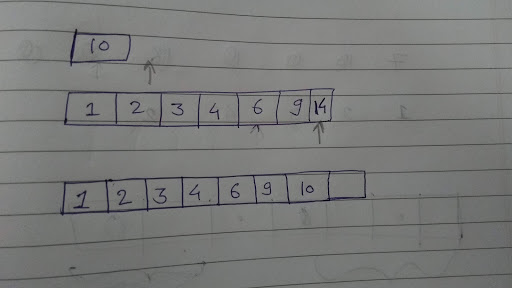 10
1 2 3 4 6 9 14
1 2 3 4 6 9 10